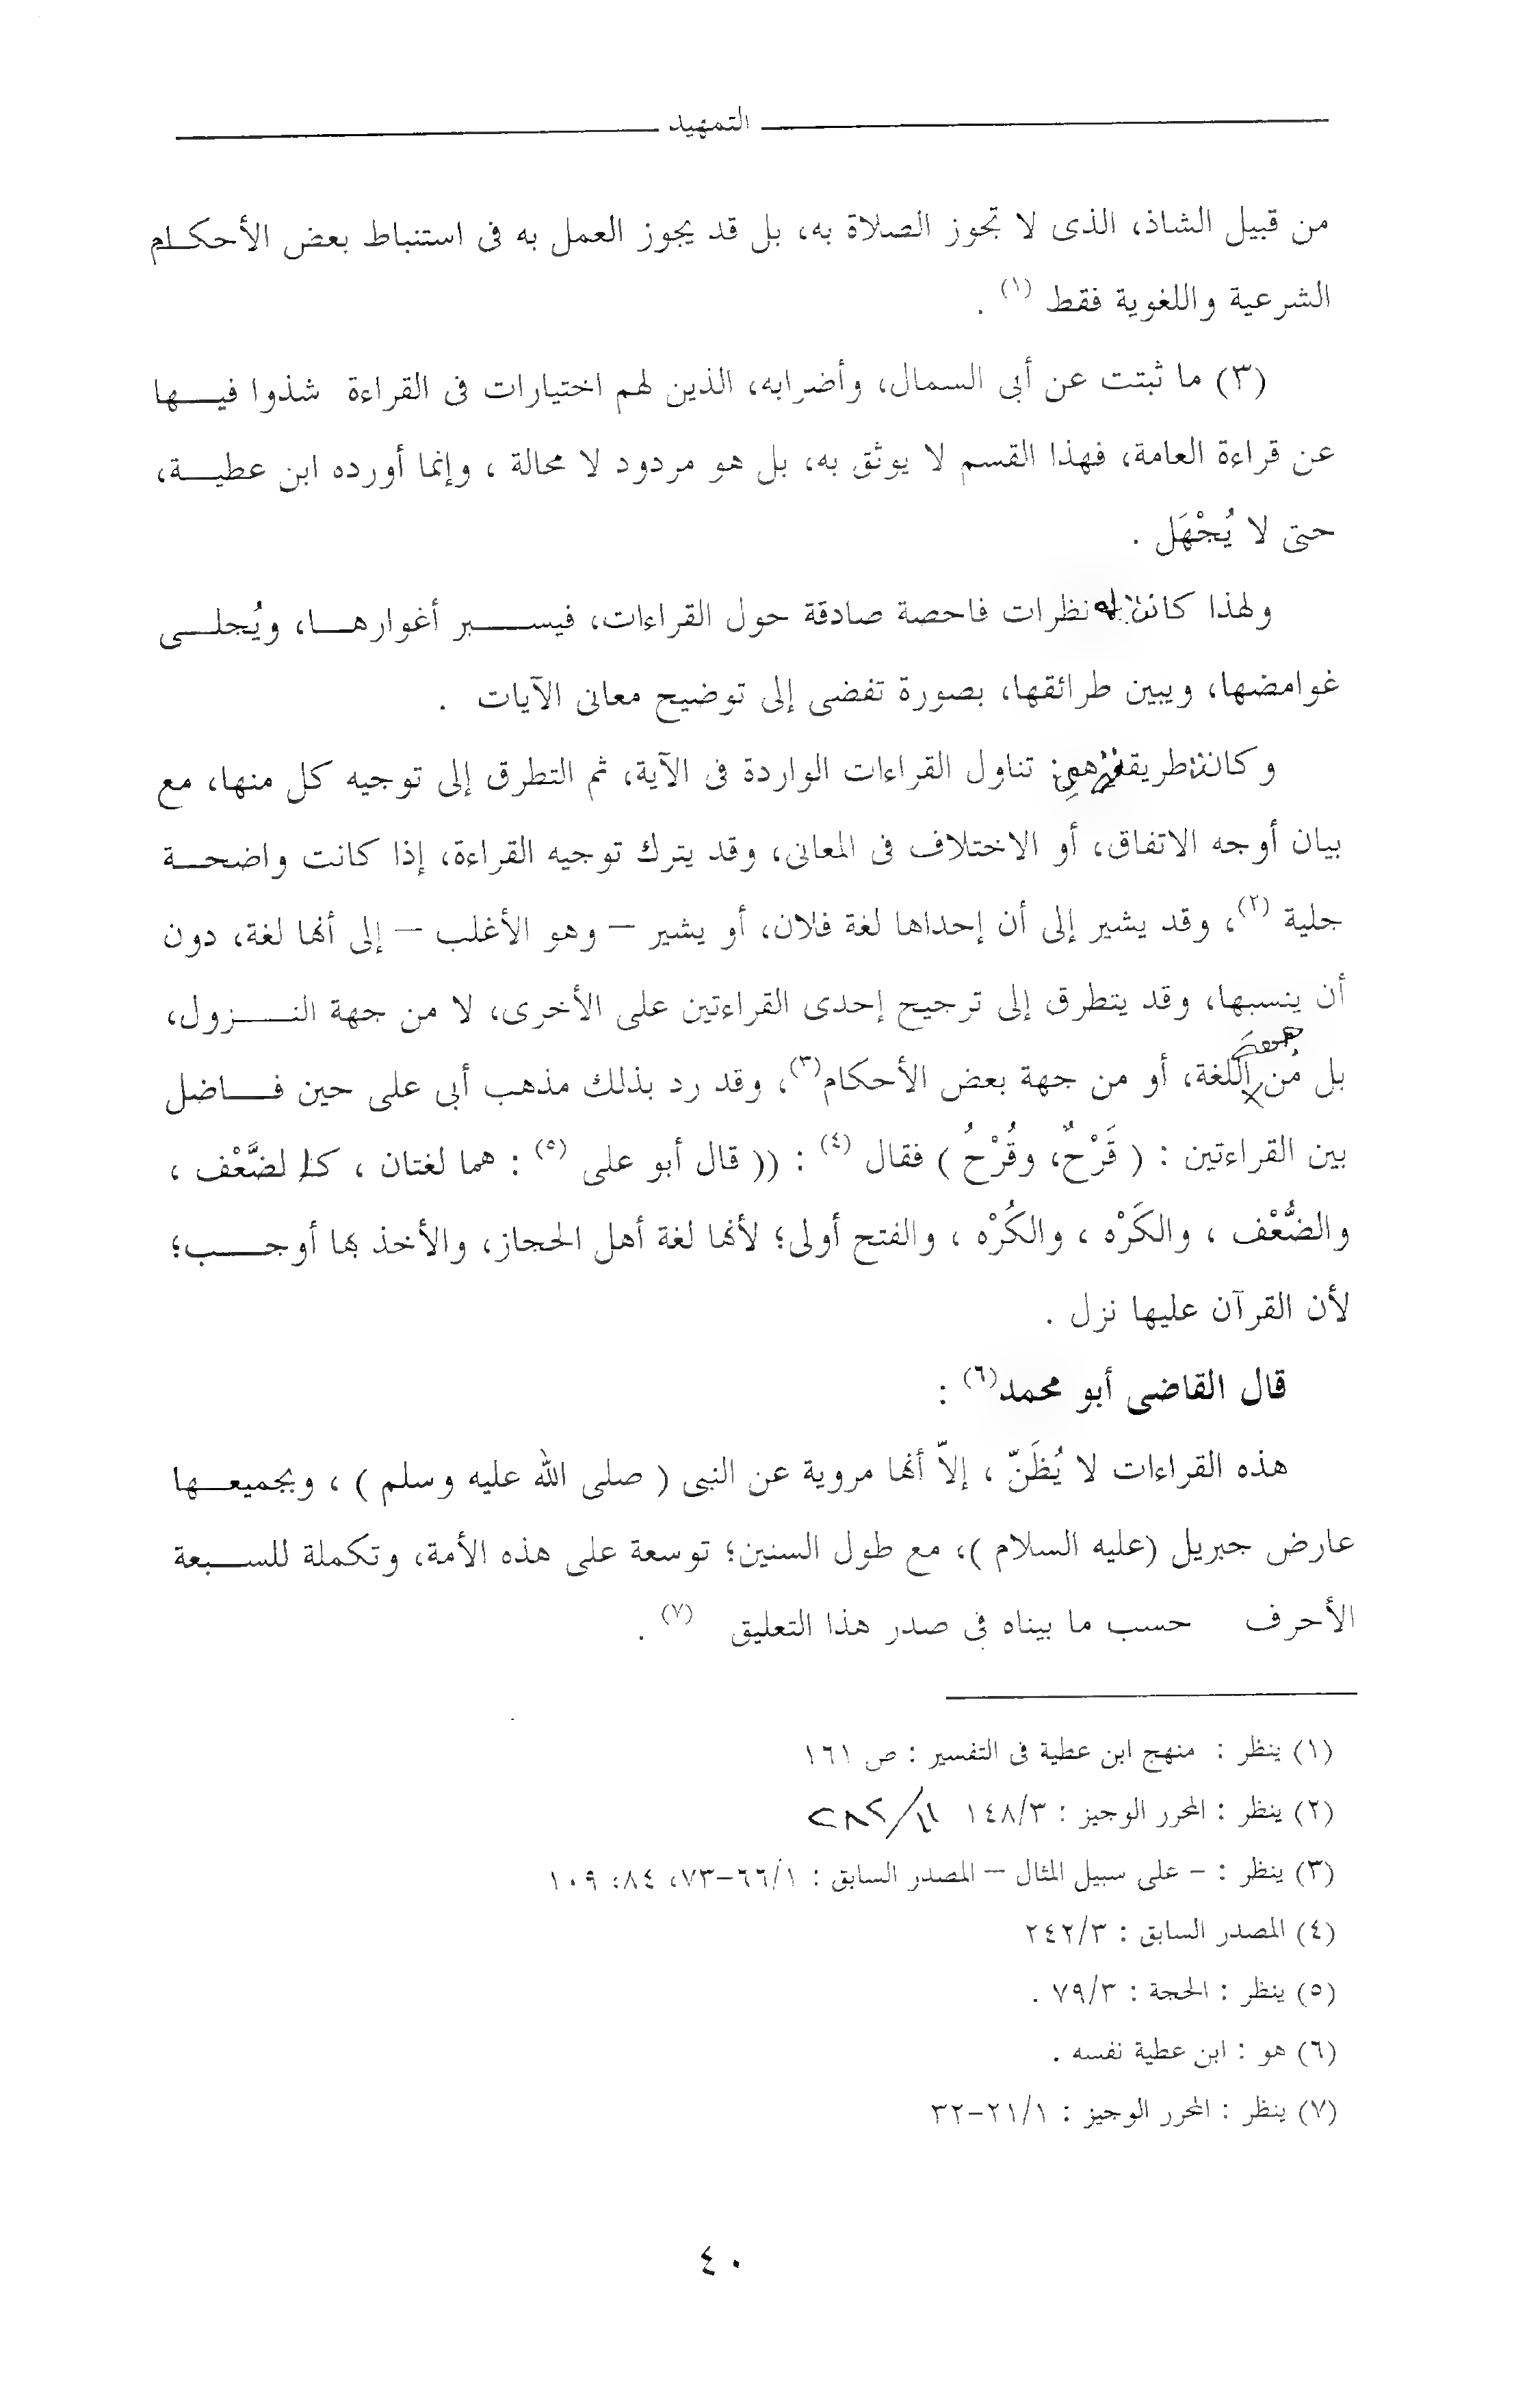 التمهيد
من قبيل الشاذ، الذى لا تجوز الصلاة به، بل قد يجوز العمل به فى استنباط بعض الأحكام
الشرعية واللغوية فقط (١) .
(٣) ما ثبتت عن أبى السمال، وأضرابه، الذين لهم اختيارات فى القراءة شذوا فيها
عن قراءة العامة، فهذا القسم لا يوثق به، بل هو مردود لا محالة ، وإنما أورده ابن عطية،
حتى لا يُجْهَل .
ولهذا كانت له نظرات فاحصة صادقة حول القراءات، فيسبر أغوارها، ويُجلى
غوامضها، ويبين طرائقها، بصورة تفضى إلى توضيح معانى الآيات .
وكانت طريقته هى: تناول القراءات الواردة فى الآية، ثم التطرق إلى توجيه كل منها، مع
بيان أوجه الاتفاق، أو الاختلاف فى المعانى، وقد يترك توجيه القراءة، إذا كانت واضحة
جلية (٢)، وقد يشير إلى أن إحداها لغة فلان، أو يشير – وهو الأغلب – إلى أنها لغة، دون
أن ينسبها، وقد يتطرق إلى ترجيح إحدى القراءتين على الأخرى، لا من جهة النزول،
بل من جهة اللغة، أو من جهة بعض الأحكام(٣)، وقد رد بذلك مذهب أبى على حين فاضل
بين القراءتين : ( قَرْحٌ، وقُرْحُ ) فقال (٤) : (( قال أبو على (٥) : هما لغتان ، كالضَّعْف ،
والضُّعْف ، والكَرْه ، والكُرْه ، والفتح أولى؛ لأنها لغة أهل الحجاز، والأخذ بها أوجب؛
لأن القرآن عليها نزل .
قال القاضى أبو محمد(٦) :
هذه القراءات لا يُظَنّ ، إلاّ أنها مروية عن النبى ( صلى الله عليه وسلم ) ، وبجميعها
عارض جبريل (عليه السلام )، مع طول السنين؛ توسعة على هذه الأمة، وتكملة للسبعة
الأحرف حسب ما بيناه فى صدر هذا التعليق (٧) .
(١) ينظر : منهج ابن عطية فى التفسير : ص ١٦١
(٢) ينظر : المحرر الوجيز : ١٤٨/٣
(٣) ينظر : - على سبيل المثال – المصدر السابق : ٦٦/١-٧٣، ٨٤، ١٠٩
(٤) المصدر السابق : ٢٤٢/٣
(٥) ينظر : الحجة : ٧٩/٣ .
(٦) هو : ابن عطية نفسه .
(٧) ينظر : المحرر الوجيز : ٢١/١-٣٢
٤٠